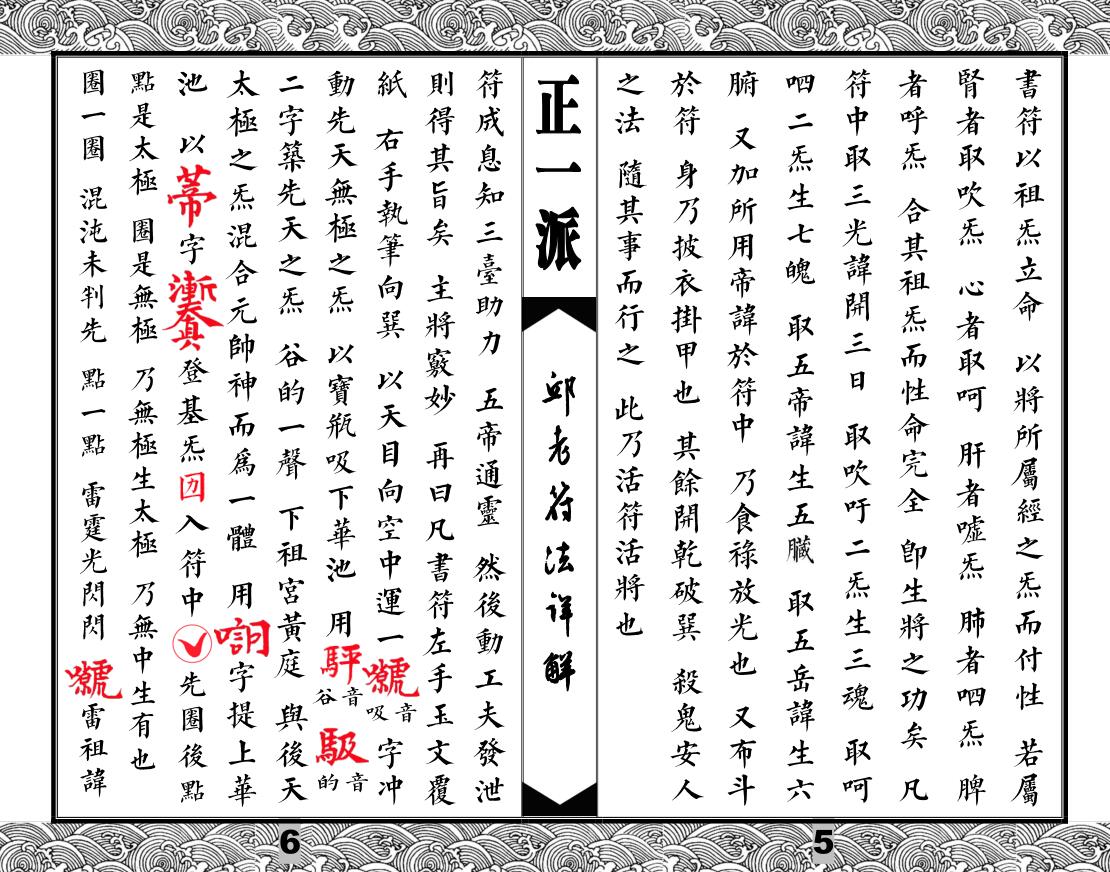 書符以祖炁立命 以將所屬經之炁而付性 若屬
腎者取吹炁 心者取呵 肝者噓炁 肺者呬炁 脾
者呼炁 合其祖炁而性命完全 卽生將之功矣 凡
符中取三光諱開三日 取吹吁二炁生三魂 取呵
呬二炁生七魄 取五帝諱生五臟 取五岳諱生六
腑 又加所用帝諱於符中 乃食祿放光也 又布斗
於符 身乃披衣掛甲也 其餘開乾破巽 殺鬼安人
之法 隨其事而行之 此乃活符活將也
正一派
邱老符法详解
符成息知三臺助力 五帝通靈 然後動工夫發泄
則得其旨矣 主將竅妙 再曰凡書符左手玉文覆
紙 右手執筆向巽 以天目向空中運一 吸音 字冲
動先天無極之炁 以寶瓶吸下華池 用 谷音 的音
二字築先天之炁 谷的一聲 下祖宮黃庭 與後天
太極之炁混合元帥神而爲一體 用 字提上華
池 以 字 登基炁 入符中 先圈後點
點是太極 圈是無極 乃無極生太極 乃無中生有也
圈一圈 混沌未判先 點一點 雷霆光閃閃 雷祖諱
6
5